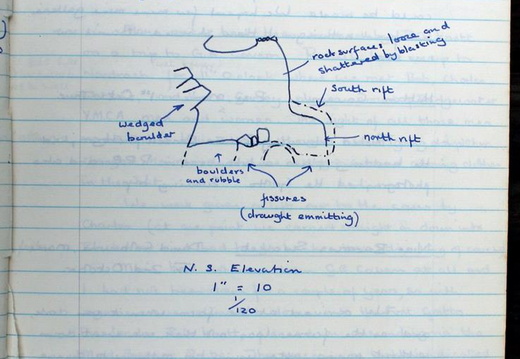 rock surfaces loose and
shattered by blasting
South rift
wedged
boulder
north rift
boulders
and rubble
fissures
(draught emmitting)
N. S. Elevation
1" = 10
1/120